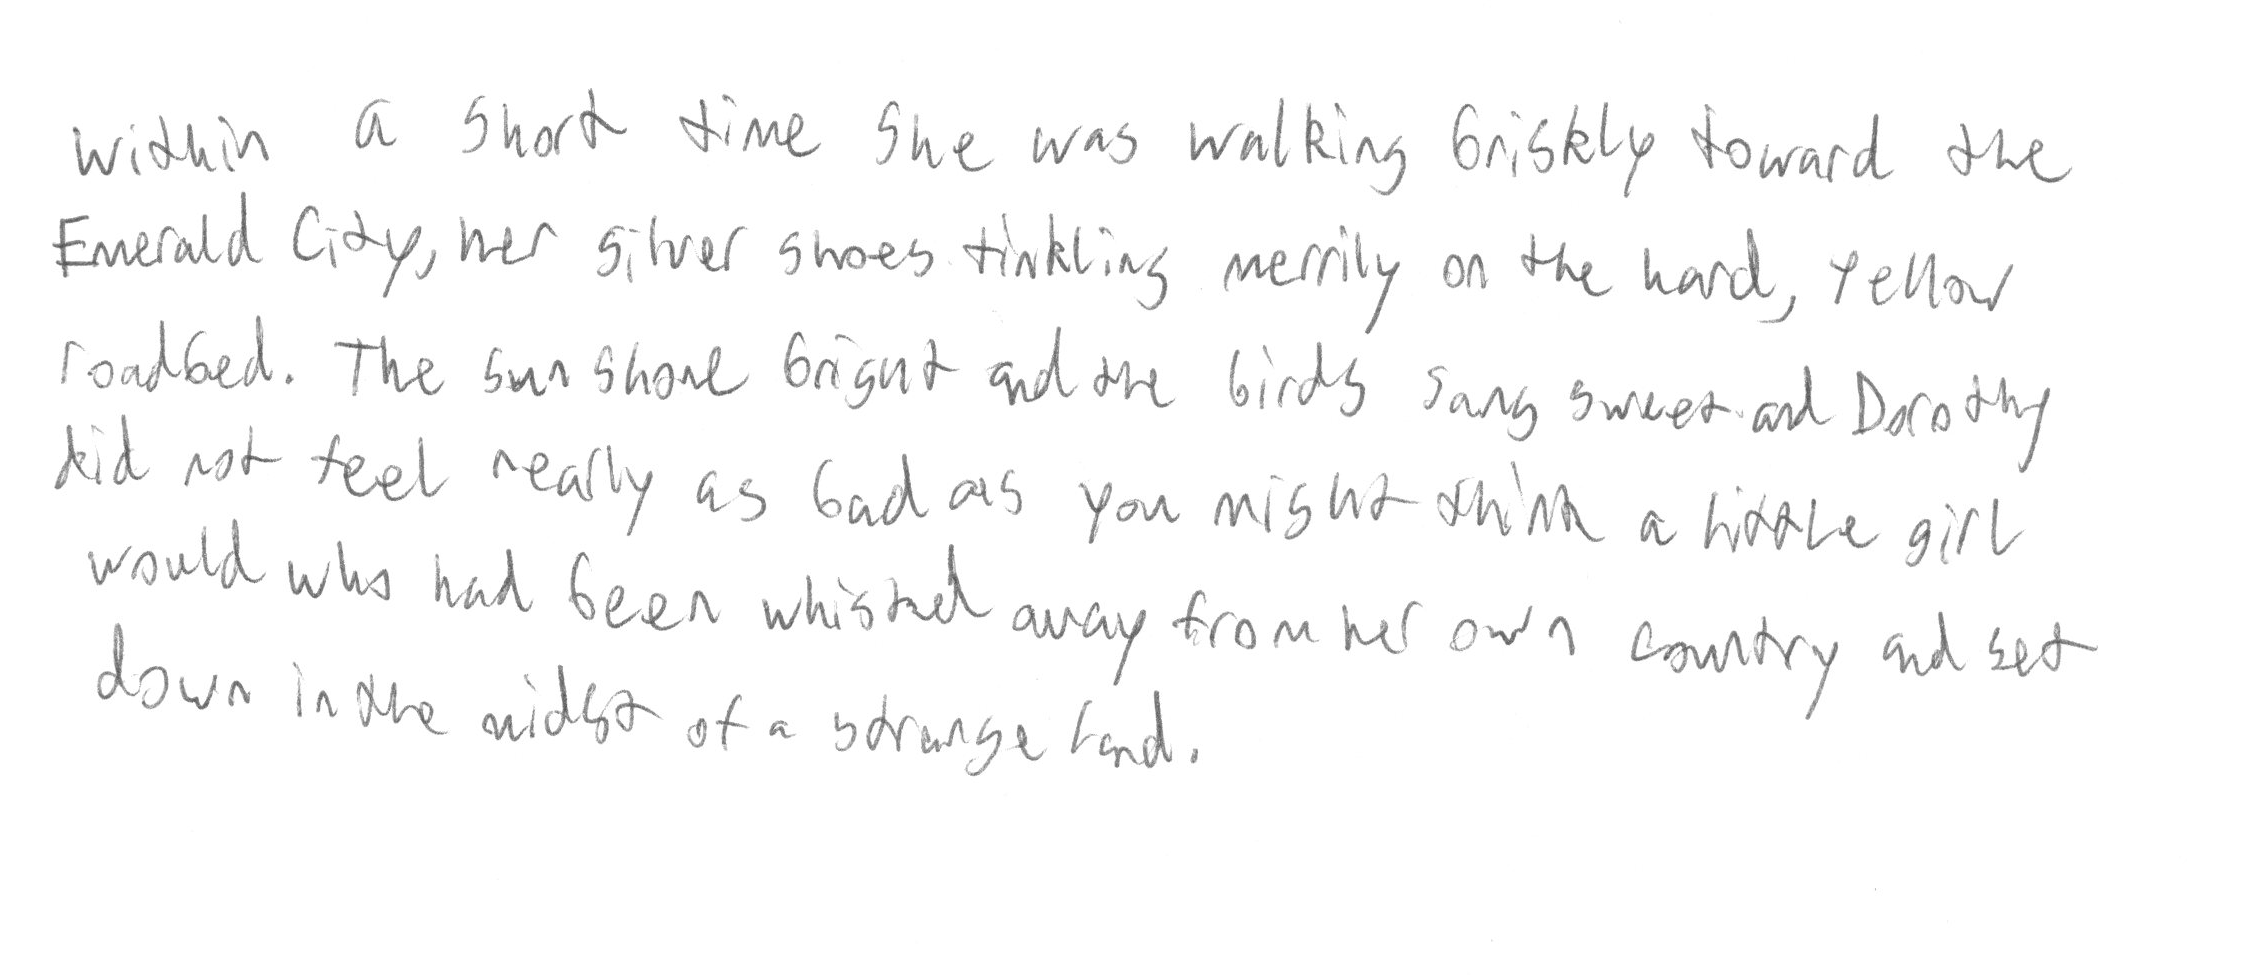 Within a short time she was walking briskly toward the
Emerald City, her silver shoes tinkling merrily on the hard, yellow
roadbed. The sun shone bright and the birds sang sweet and Dorothy
did not feel nearly as bad as you might think a little girl
would who had been whisked away from her own country and set
down in the midst of a strange land.